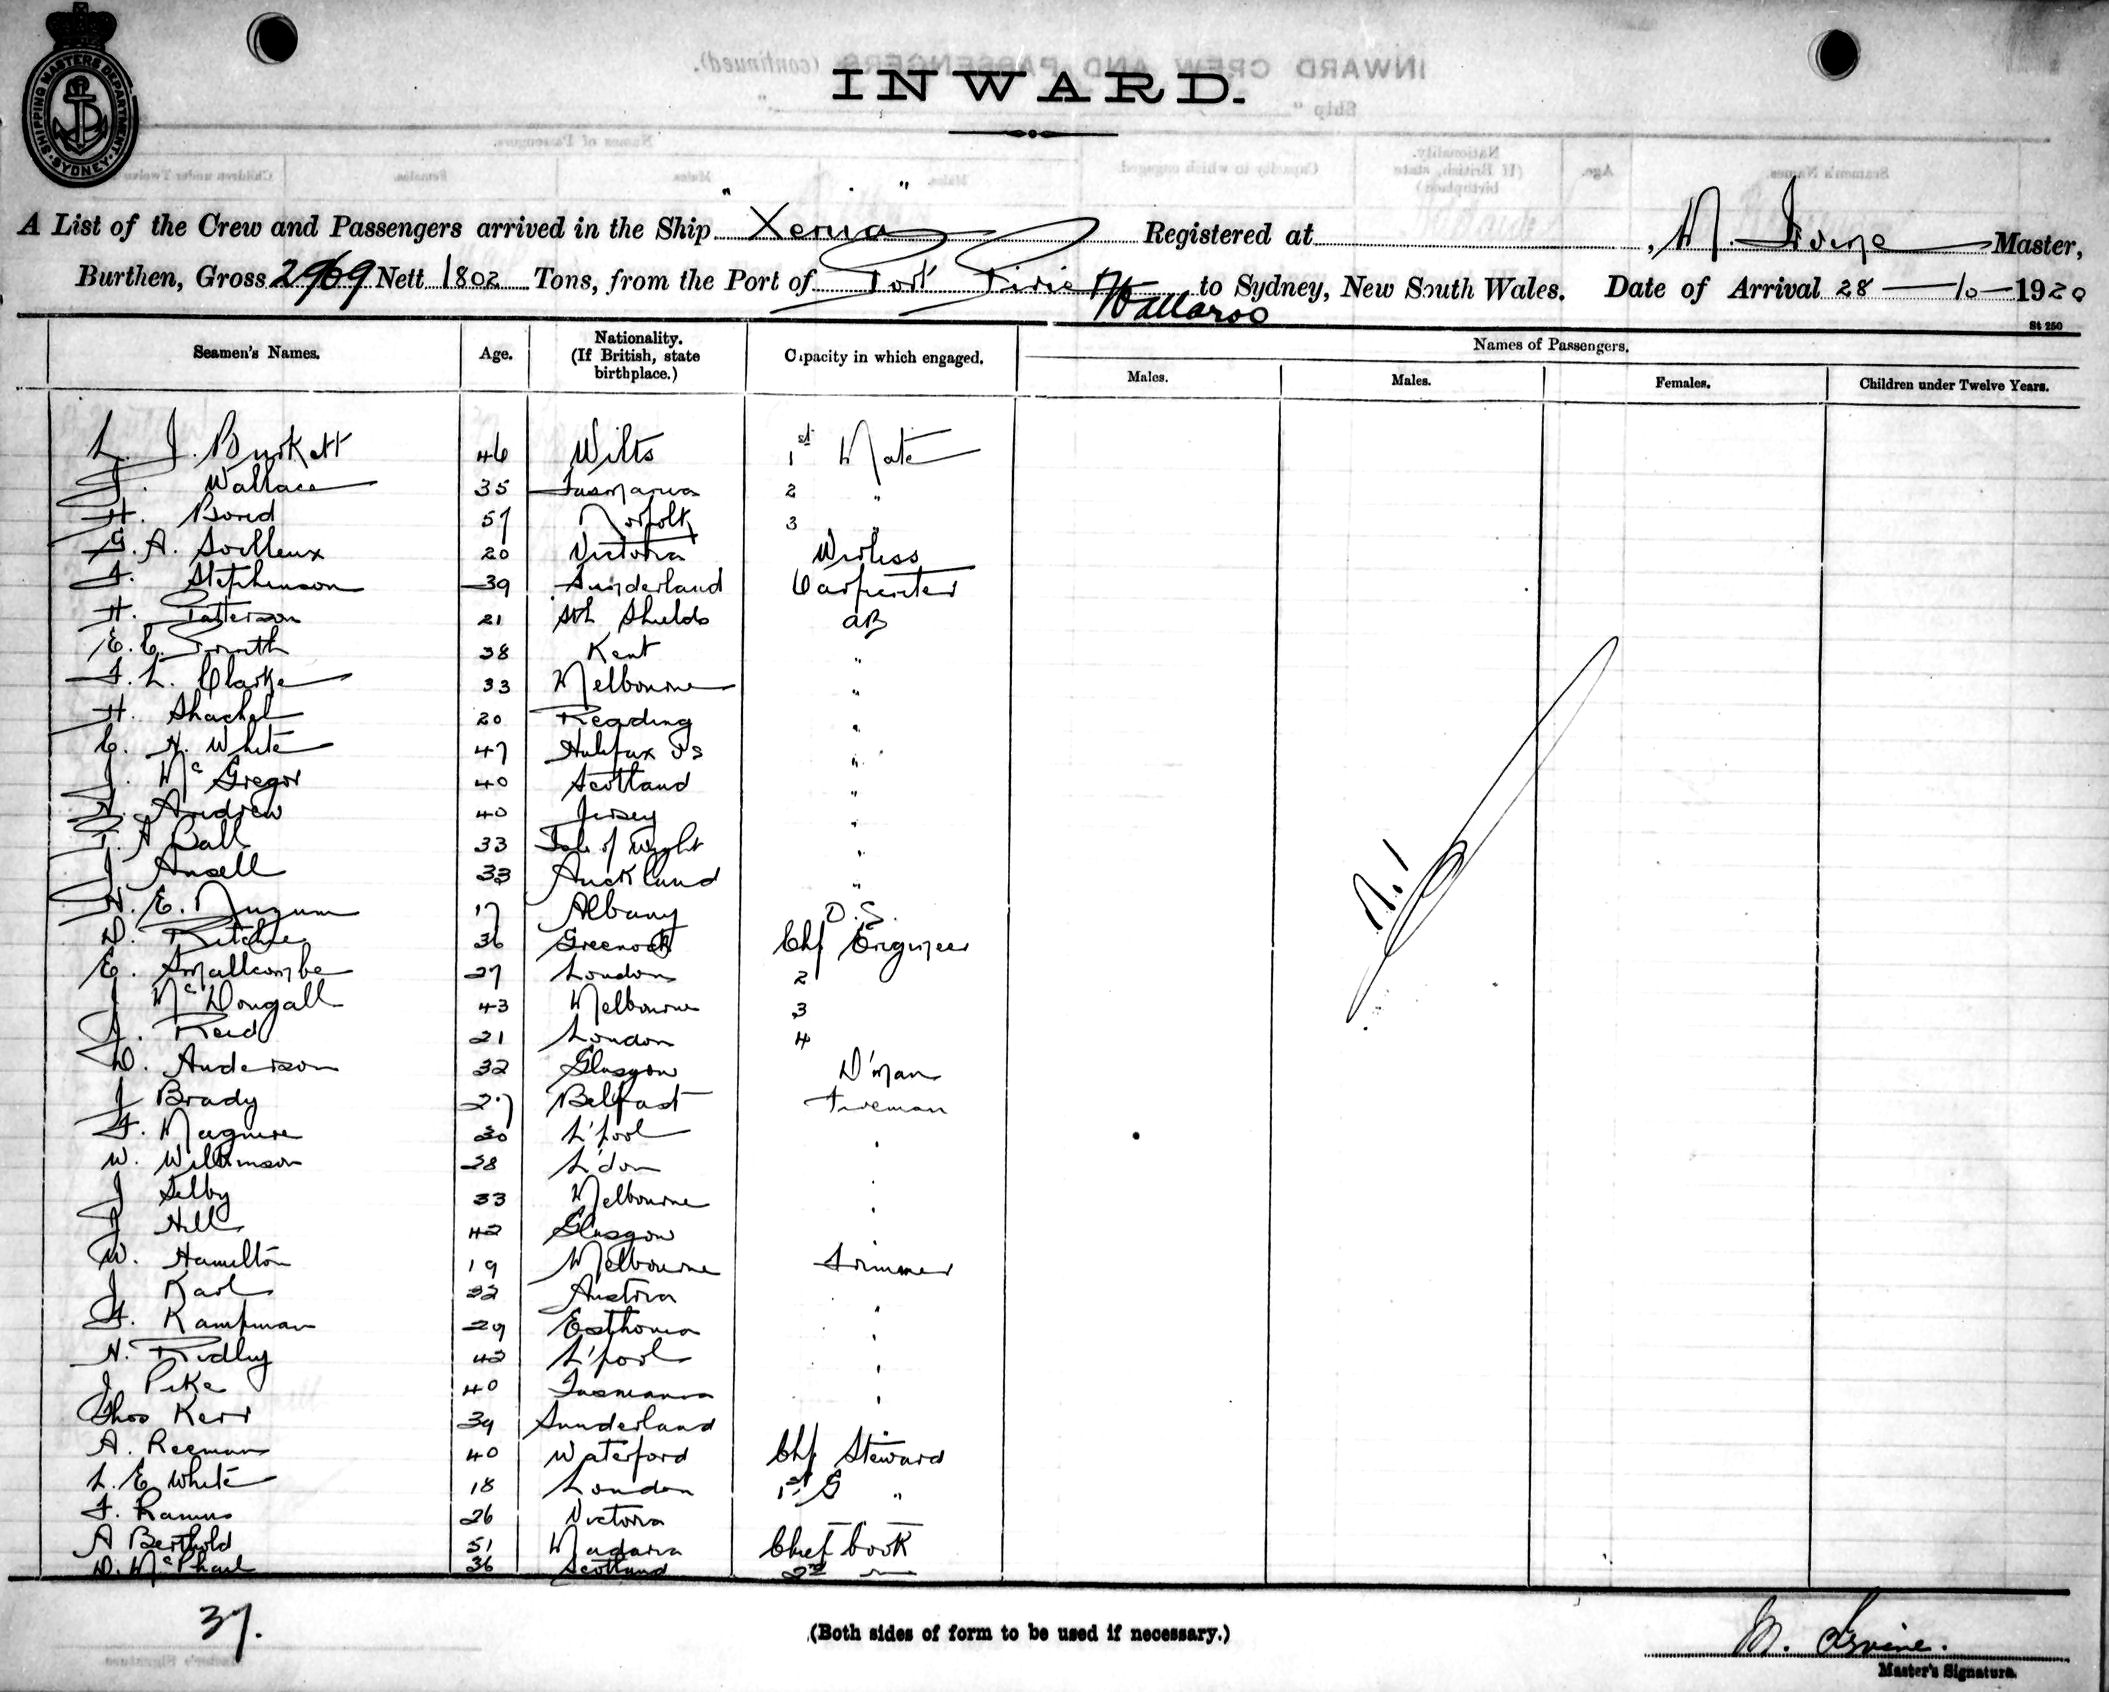 SHIPPING MASTERS DEPARTMENT. SYDNEY
INWARD.
A List of the Crew and Passengers arrived in the Ship "Xenia" Registered at , M. Irvine Master,
Burthen, Gross 2969 Nett 1802 Tons, from the Port of Port Pirie Wallaroo to Sydney, New South Wales. Date of Arrival 28-10-1920
St 250
Seamen's Names. Age. Nationality. (If British, state birthplace.) Capacity in which engaged. Names of Passengers.
Males. Males. Females. Children under Twelve Years.
L. J. Burkett 46 Wilts 1st Mate
J. Wallace 35 Tasmania 2 "
H. Bond 57 Norfolk 3 "
G. A. Soilleux 20 Victoria Wirless
F. Stephenson 39 Sunderland Carpenter
H. Patterson 21 Sth Shields AB
E. C. Smith 38 Kent "
F. L. Clarke 33 Melbourne "
H. Shackel 20 Reading "
C. H. White 47 Halifax "
J. McGregor 40 Scotland "
H. Andrew 40 Jersey "
F. A Ball 33 Isle of Wight "
J Ansell 33 Auckland "
H. E. Nuzum 17 Albany O.S.
D. Ritchie 36 Greenock Chf Engineer
E. Smallcombe 27 London 2
J McDougall 43 Melbourne 3
J. Reid 21 London 4
D. Anderson 32 Glasgow D'man
J Brady 27 Belfast Fireman
F. Maguire 30 L'pool "
W. Wilkinson 28 L'don "
J Selby 33 Melbourne "
J Hill 42 Glasgow "
W. Hamilton 19 Melbourne Trimmer
J Karl 32 Austria "
F. Kampman 29 Esthonia "
H. Ridley 42 L'pool "
J Pike 40 Tasmania "
Thos Kerr 39 Sunderland "
A. Reeman 40 Waterford Chf Steward
L. E White 18 London 1st S "
F. Ramus 26 Victoria
A Berthold 51 Madaria Chief Cook
D. McPhail 36 Scotland 2nd
Nil
37.
(Both sides of form to be used if necessary.)
M. Irvine.
Master's Signature.